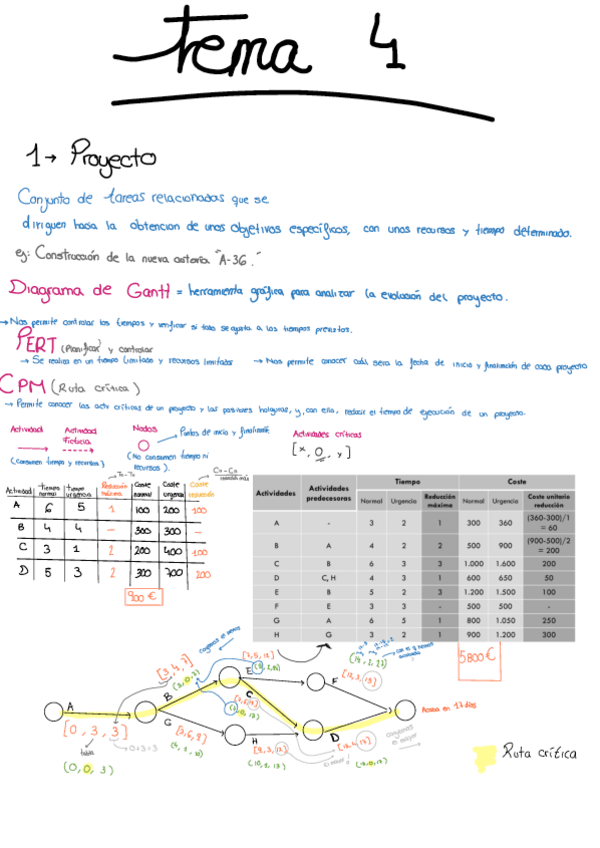 tema 4
1→ Proyecto
Conjunto de tareas relacionadas que se
diriguen hacia la obtencion de unos objetivos específicos, con unos recursos y tiempo determinado.
ej: Construcción de la nueva autovía "A-36."
Diagrama de Gantt = herramienta gráfica para analizar la evolución del proyecto.
→ Nos permite controlar los tiempos y verificar si todo se ajusta a los tiempos previstos.
PERT (Planificar y controlar
→ Se realiza en un tiempo limitado y recursos limitados → Nos permite conocer cuál sera la fecha de inicio y finalización de cada proyecto
CPM (Ruta crítica)
→ Permite conocer las activ críticas de un proyecto y las posibles holguras, y, con ello, reducir el tiempo de ejecución de un proyecto.
Actividad Actividad Ficticia Nodos → Puntos de inicio y finalización. Actividades críticas
[x, 0, y]
(Consumen tiempo y recursos) (No consumen tiempo ni recursos).
Actividad tiempo normal tiempo urgencia Reducción máxima Coste normal Coste urgencia Coste
A 6 5 1 100 200 100
B 4 4 — 300 300 —
C 3 1 2 200 400 100
D 5 3 2 300 700 200
900 €
Actividades Actividades predecesoras Tiempo Coste
Normal Urgencia Reducción máxima Normal Urgencia Coste unitario reducción
A - 3 2 1 300 360 (360-300)/1 = 60
B A 4 2 2 500 900 (900-500)/2 = 200
C B 6 3 3 1.000 1.600 200
D C, H 4 3 1 600 650 50
E B 5 2 3 1.200 1.500 100
F E 3 3 - 500 500 -
G A 6 5 1 800 1.050 250
H G 3 2 1 900 1.200 300
5800 €
[3, 4, 7]
(3, 0, 7)
[7, 5, 12]
E
F
B
C
A
[0, 3, 3]
G
[3, 6, 9]
H
[9, 3, 12]
(10, 1, 13)
D
Acaba en 17 dias
tabla
0+3=3
(0, 0, 3)
(13, 0, 17)
Ruta crítica